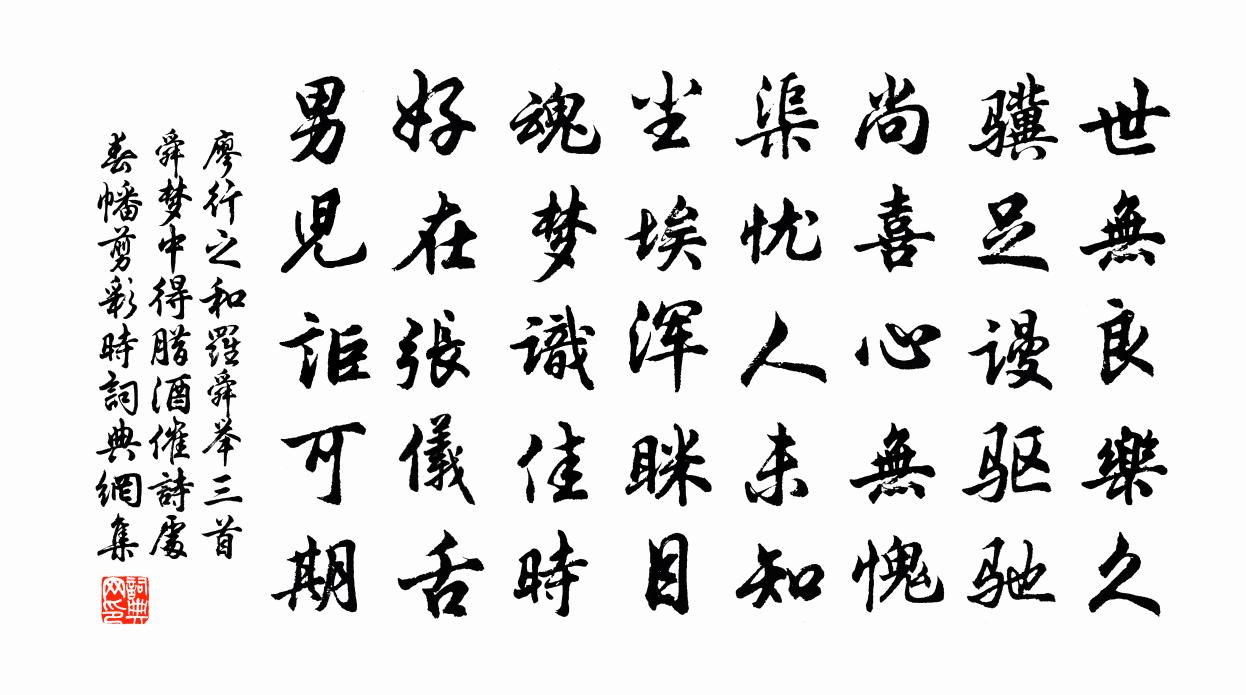 世無良樂久
骥足谩驱驰
尚喜心無愧
渠忧人未知
尘埃浑眯目
魂梦識佳時
好在張儀舌
男児詎可期
廖行之和羅舜举三首
舜梦中得腊酒催詩處
春幡剪彩時詞典網集
詞典網印